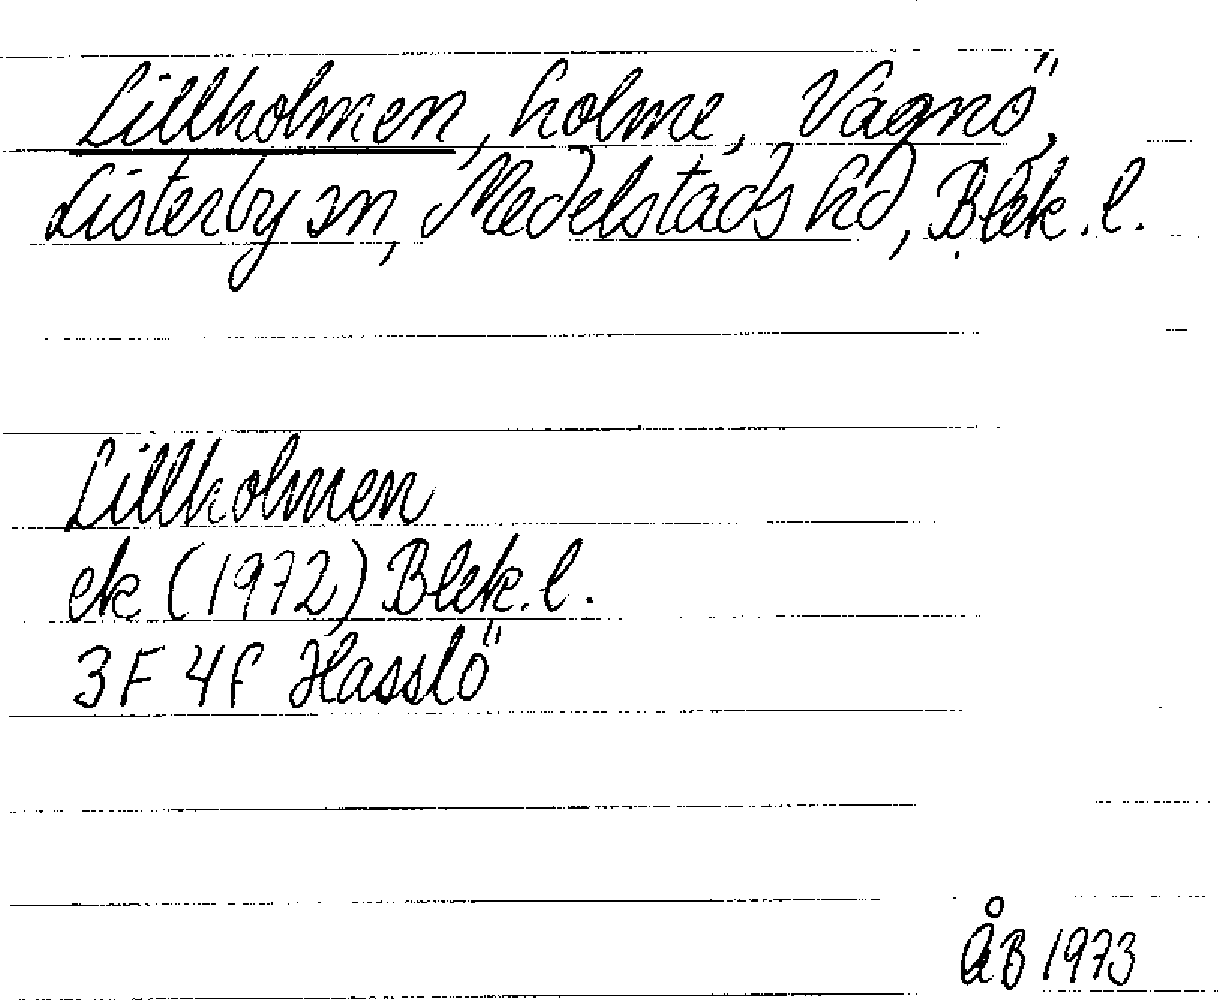 Lillholmen, holme, Vagnö,
Listerby sn, Medelstads hd, Blek. l.
Lillholmen
ek (1972) Blek. l.
3F 4f Hasslö
ÅB 1973